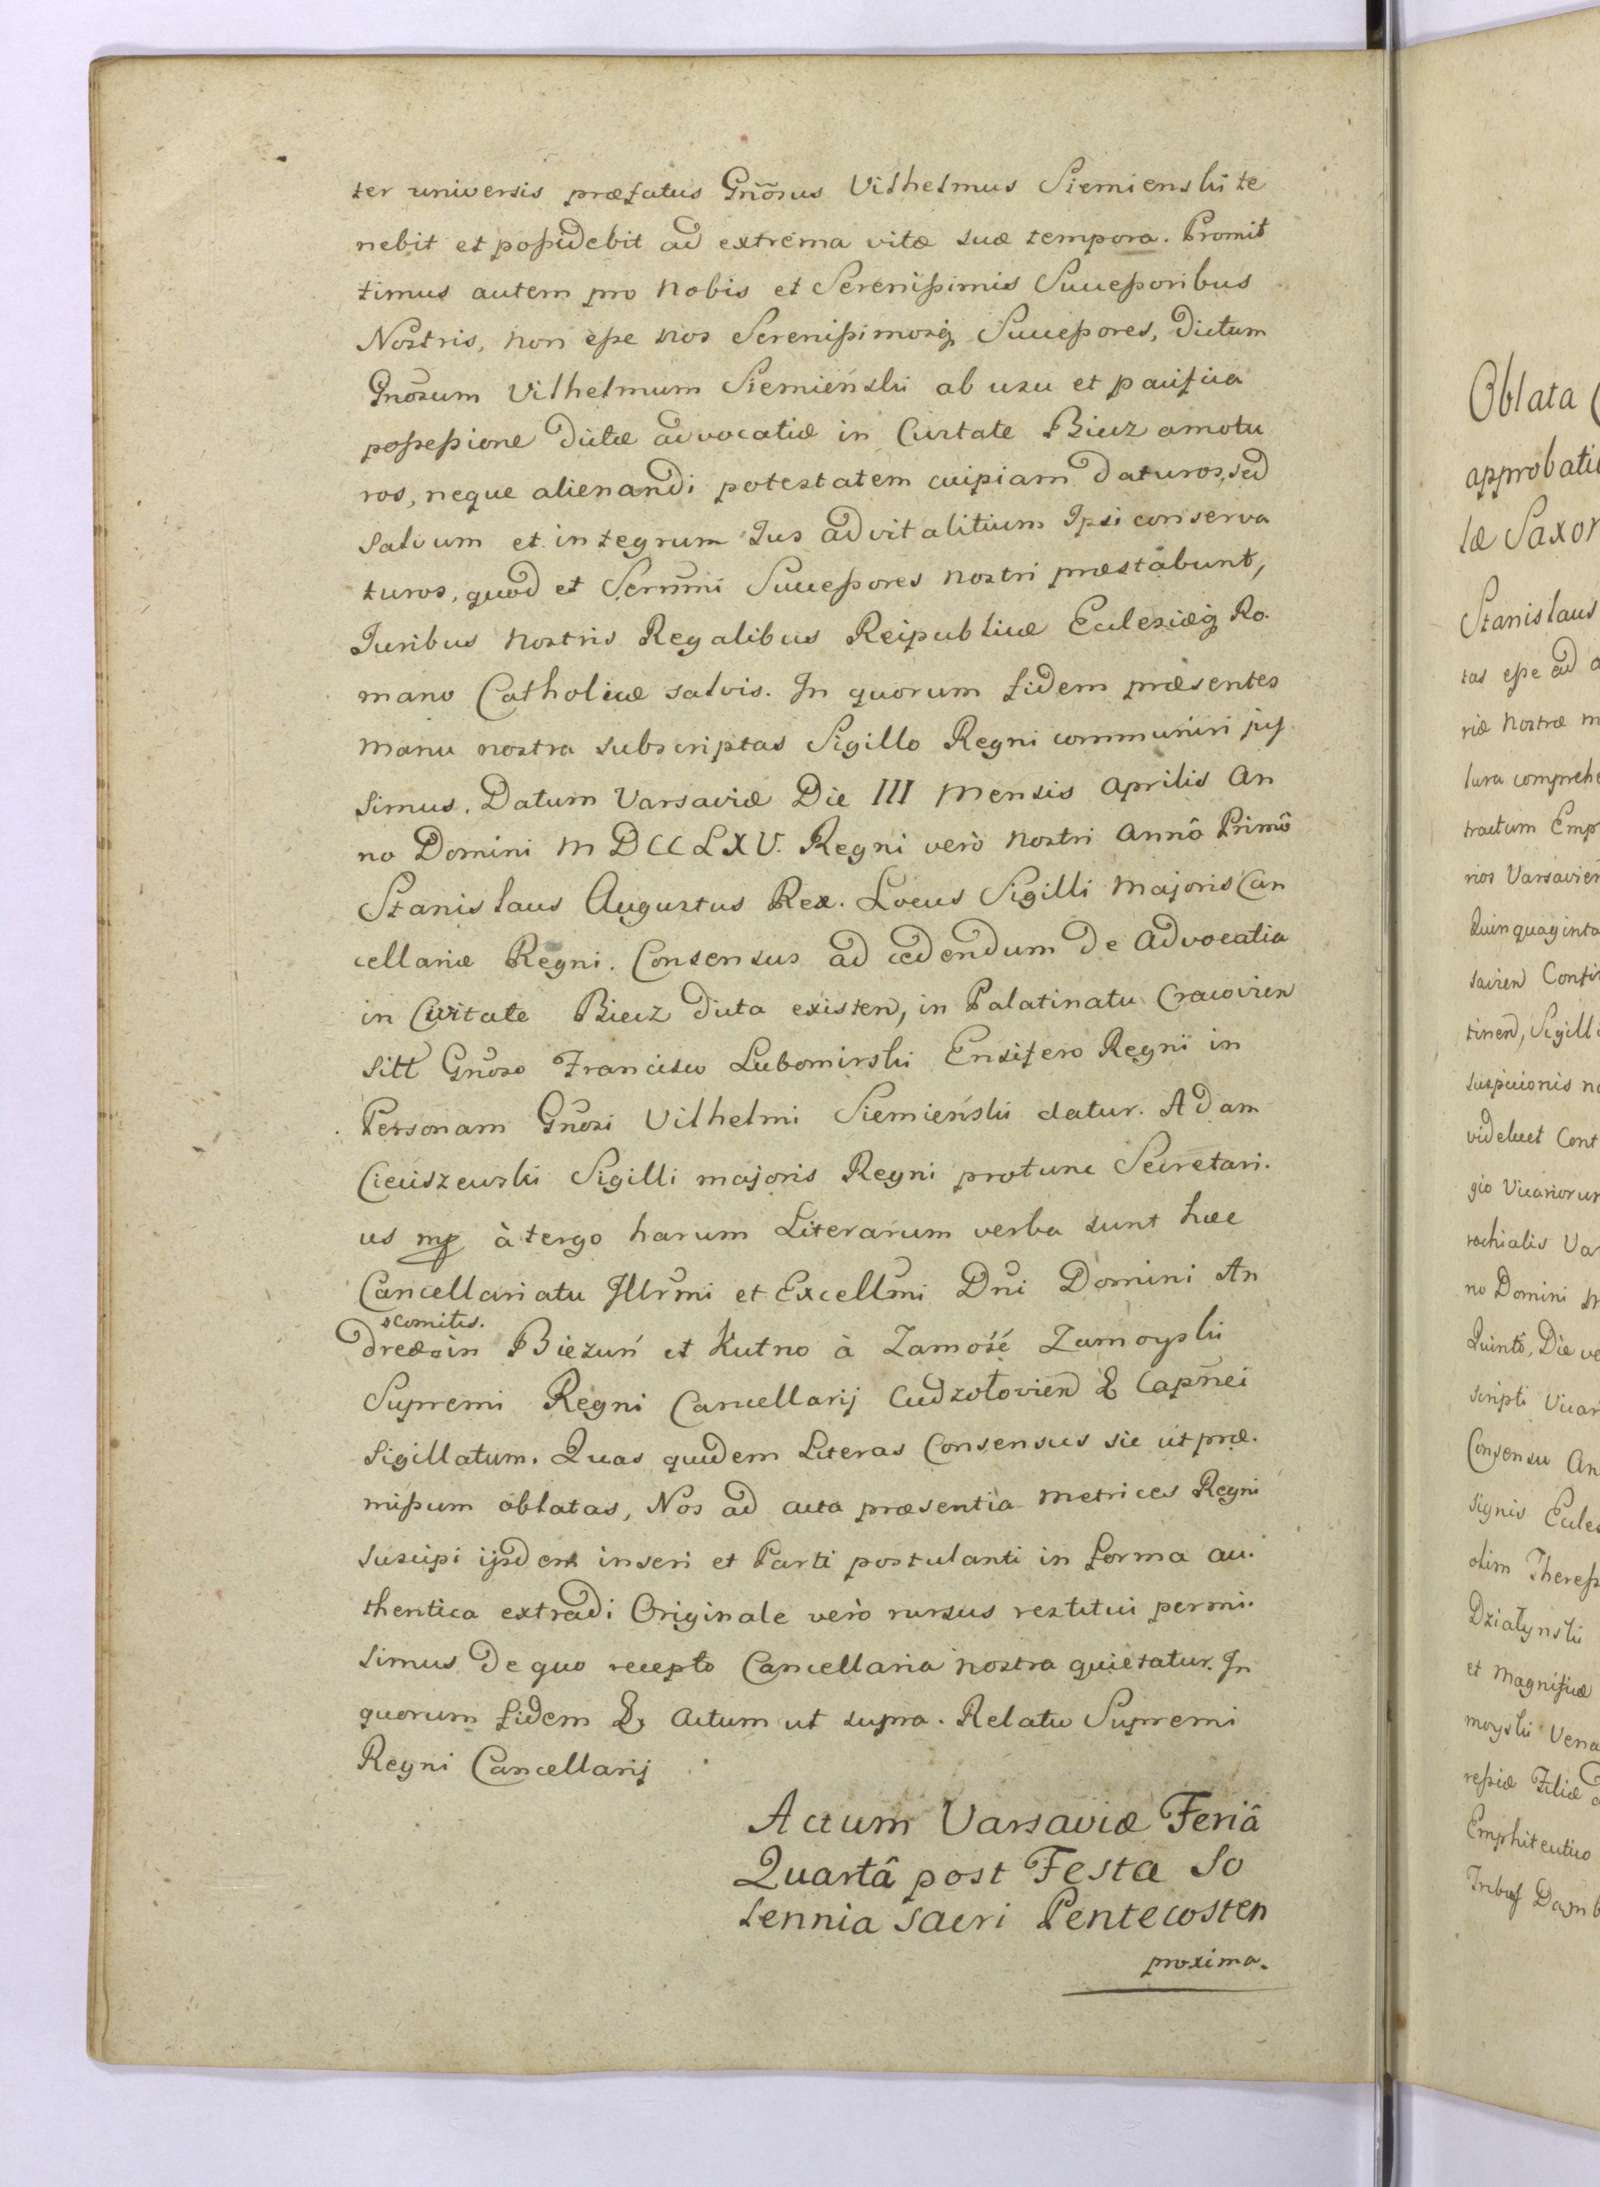 ter universis præfatus Gnõsus Vilhelmus Siemienski te
nebit et possidebit ad extrema vitæ suæ tempora. Promit
timus autem pro Nobis et Serenissimis Successoribus
Nostris, non esse nos Serenissimosq Successores, dictum
Gnõsum Vilhelmum Siemieński ab usu et pacifica
possessione dictæ advocatiæ in Civitate Biecz amotu
ros, neque alienandi potestatem cuipiam daturos, sed
salvum et integrum Jus advitalitium Ipsi conserva
turos, quod et Serm̃i Successores nostri præstabunt,
Juribus nostris Regalibus Reipublicæ Eclesiæq Ro.
mano Catholicæ salvis. In quorum fidem præsentes
manu nostra subscriptas Sigillo Regni communiri jus
simus. Datum Varsaviæ Die III mensis Aprilis An
no Domini MDCCLXV. Regni verò nostri annô Primô
Stanislaus Augustus Rex. Locus Sigilli Majoris Can
cellariæ Regni. Consensus ad cedendum de Advocatia
in Civitate Biecz dicta existen, in Palatinatu Cracovien
sitt Gnõso Francisco Lubomirski Ensifero Regni in
Personam Gnõsi Vilhelmi Siemieński datur. Adam
Cieciszewski Sigilli majoris Regni protunc Secretari.
us mp à tergo harum Literarum verba sunt hæc
Cancellariatu Illrm̃i et Excellm̃i Dñi Domini An
comitis.
dreæ in Bieżuń et Kutno à Zamość Zamoyski
Supremi Regni Cancellarij Cudzołovien & Capñei
Sigillatum. Quas quidem Literas Consensus sic ut præ.
missum oblatas, Nos ad acta præsentia metrices Regni
suscipi ijsdem inseri et Parti postulanti in forma au.
thentica extradi Originale verò rursus restitui permi.
simus de quo recepto Cancellaria nostra quietatur. In
quorum fidem & Actum ut supra. Relatio Supremi
Regni Cancellarij
Actum Varsaviæ Feriâ
Quartâ post Festa So
lennia Sacri Pentecosten
proxima.
Oblata
approbati
læ Saxon
Stanislaus
tas esse ad
riæ Nostræ m
lura comprehe
tractum Emp
rios Varsavien
Quinquaginta
savien Confi
tinen, Sigill
suspicionis n
videlicet Cont
gio Vicariorum
rochialis Va
no Domini M
Quintô, Die ve
scripti Vicar
Consensu An
signis Ecles
olim Theres
Działyński
et Magnificæ
moyski Vena
ressiæ Filiæ
Emphiteutico
Tribus Damb